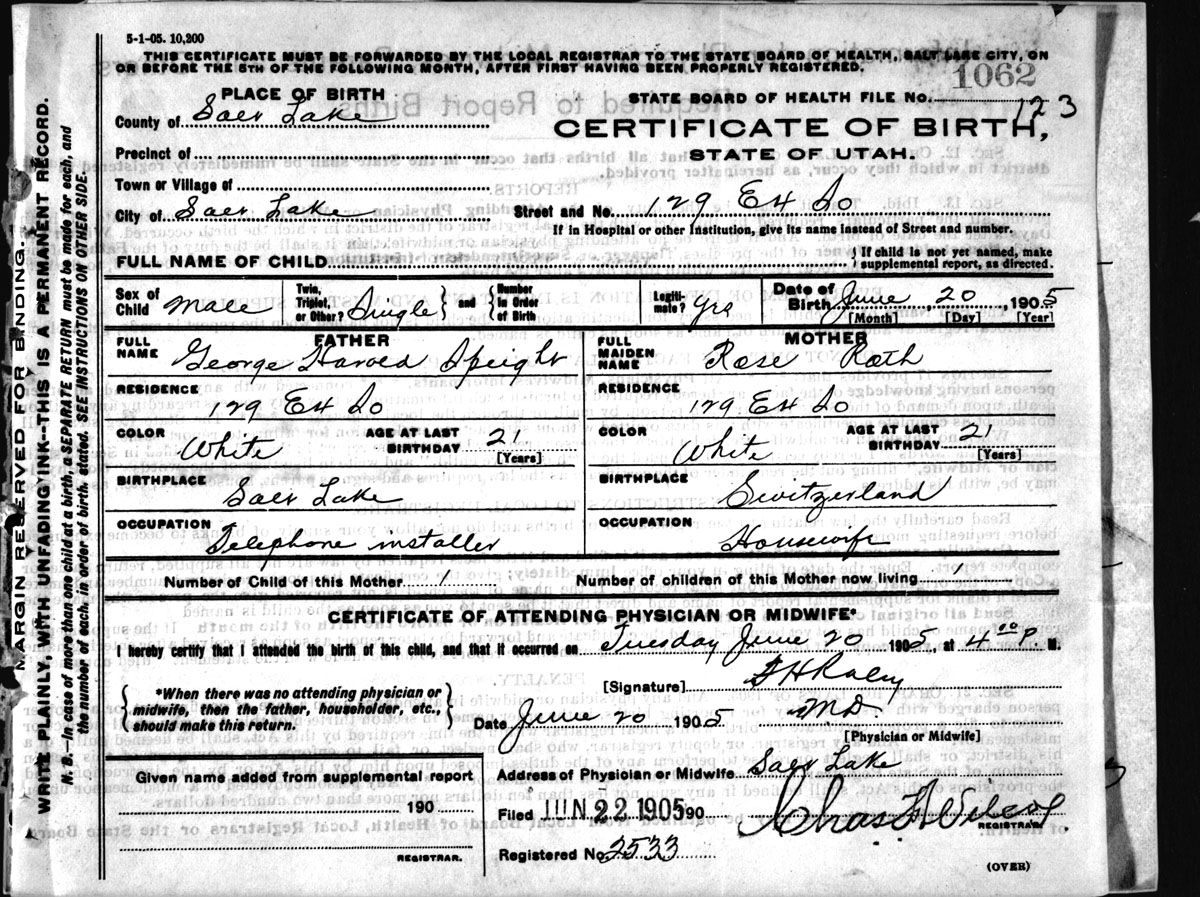 5-1-05. 10,200
THIS CERTIFICATE MUST BE FORWARDED BY THE LOCAL REGISTRAR TO THE STATE BOARD OF HEALTH, SALT LAKE CITY, ON
OR BEFORE THE 5TH OF THE FOLLOWING MONTH, AFTER FIRST HAVING BEEN PROPERLY REGISTERED.
1062
PLACE OF BIRTH
STATE BOARD OF HEALTH FILE NO.
123
County of Salt Lake
CERTIFICATE OF BIRTH,
Precinct of
STATE OF UTAH.
Town or Village of
City of Salt Lake Street and No. 129 E 4 So
If in Hospital or other Institution, give its name instead of Street and number.
FULL NAME OF CHILD { If child is not yet named, make
supplemental report, as directed.
Sex of Child Male Twin, Triplet, or Other? Single } and { Number in Order of Birth Legiti-mate? Yes Date of Birth June 20, 1905
[Month] [Day] [Year]
FATHER MOTHER
FULL NAME George Harold Speight FULL MAIDEN NAME Rose Roth
RESIDENCE RESIDENCE
129 E 4 So 129 E 4 So
COLOR White AGE AT LAST BIRTHDAY 21 COLOR White AGE AT LAST BIRTHDAY 21
[Years] [Years]
BIRTHPLACE BIRTHPLACE
Salt Lake Switzerland
OCCUPATION OCCUPATION
Telephone installer Housewife
Number of Child of this Mother 1 Number of children of this Mother now living 1
CERTIFICATE OF ATTENDING PHYSICIAN OR MIDWIFE*
I hereby certify that I attended the birth of this child, and that it occurred on Tuesday June 20 1905, at 4 00 P. M.
{ *When there was no attending physician or
midwife, then the father, householder, etc.,
should make this return. }
[Signature]
M.D.
Date June 20 1905
[Physician or Midwife]
Given name added from supplemental report
Address of Physician or Midwife Salt Lake
190
Filed JUN 22 1905 190
Chas H Wilcox
REGISTRAR.
REGISTRAR.
Registered No. 2533
(OVER)
MARGIN RESERVED FOR BINDING.
WRITE PLAINLY, WITH UNFADING INK--THIS IS A PERMANENT RECORD.
N. B.--In case of more than one child at a birth, a SEPARATE RETURN must be made for each, and
the number of each, in order of birth, stated. SEE INSTRUCTIONS ON OTHER SIDE.